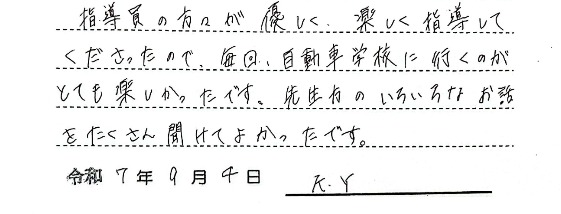 指導員の方々が優しく、楽しく指導して
くださったので、毎回、自動車学校に行くのが
とても楽しかったです。先生方のいろいろなお話
をたくさん聞けてよかったです。
令和 7年9月4日 K.Y